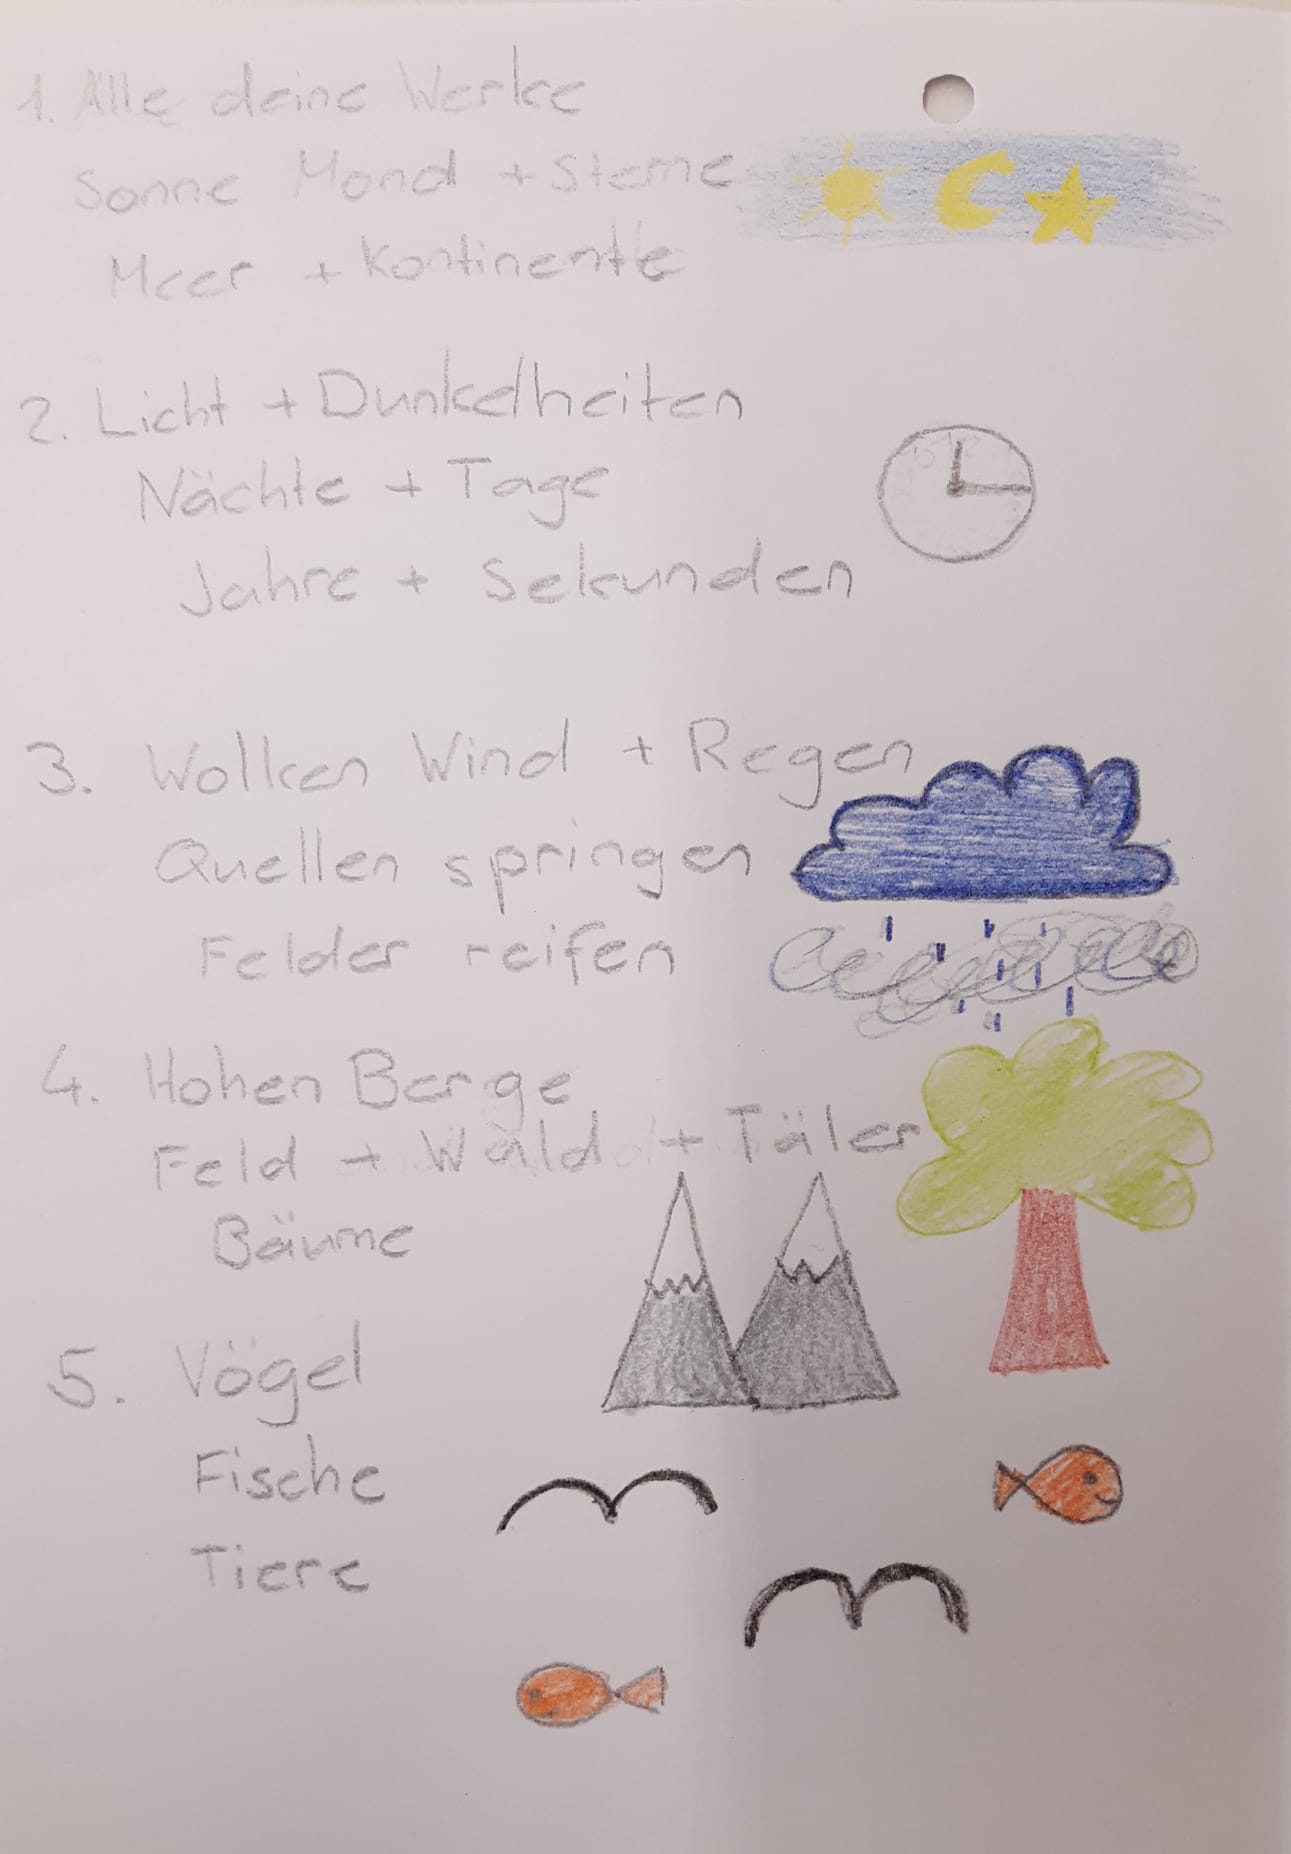 1. Alle deine Werke
Sonne Mond + Sterne
Meer + Kontinente
2. Licht + Dunkelheiten
Nächte + Tage
Jahre + Sekunden
3. Wolken Wind + Regen
Quellen springen
Felder reifen
4. Hohen Berge
Feld + Wald + Täler
Bäume
5. Vögel
Fische
Tiere